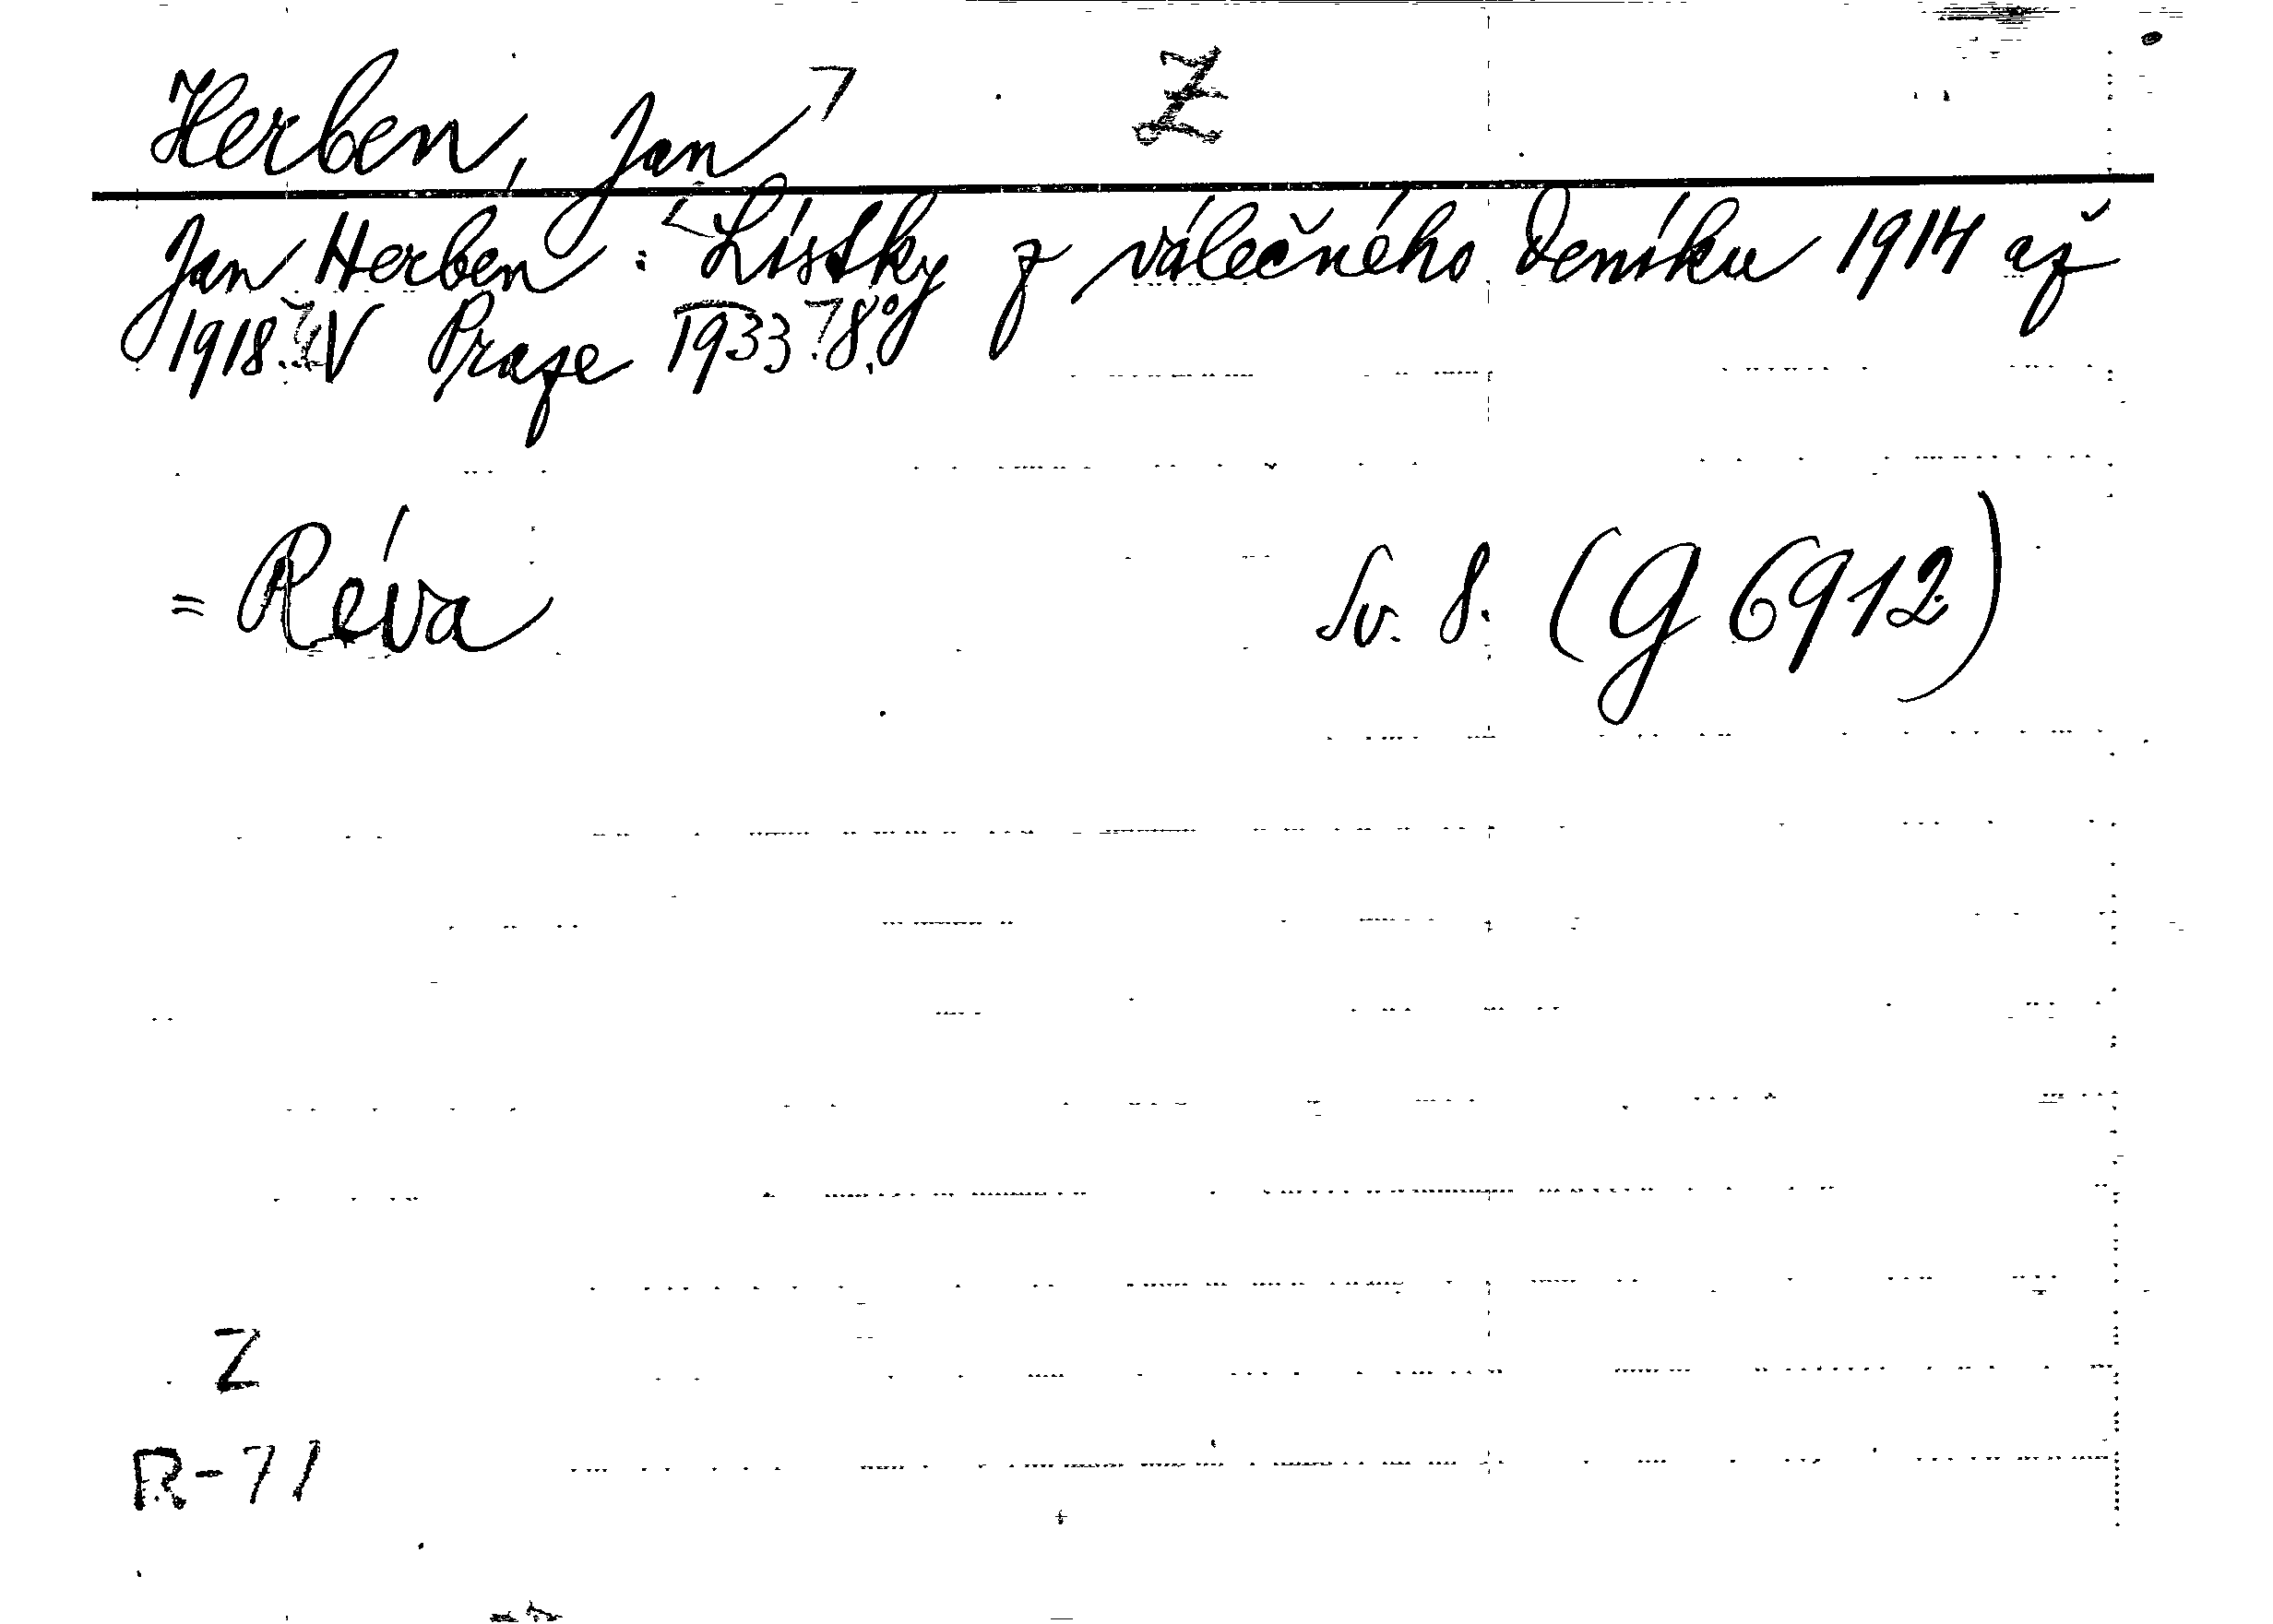 Herben, Jan Z
Jan Herben: Lístky z válečného deníku 1914 až
1918. V Praze 1933. 8.°
= Réva Sv. 8. (G 6912)
Z
R-71